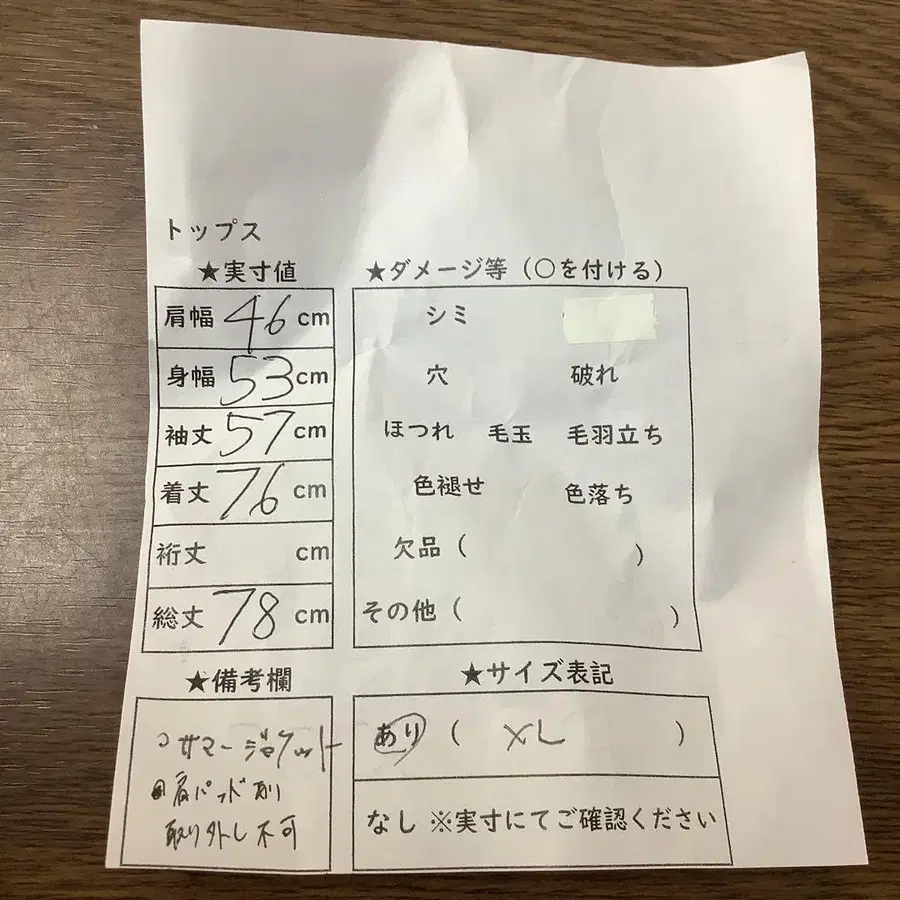 トップス
★実寸値
肩幅 46 cm
身幅 53 cm
袖丈 57 cm
着丈 76 cm
裄丈 cm
総丈 78 cm
★ダメージ等（○を付ける）
シミ
穴 破れ
ほつれ 毛玉 毛羽立ち
色褪せ 色落ち
欠品（ ）
その他（ ）
★備考欄
サマージャケット
肩パッド有り
取り外し不可
★サイズ表記
あり（ XL ）
なし ※実寸にてご確認ください